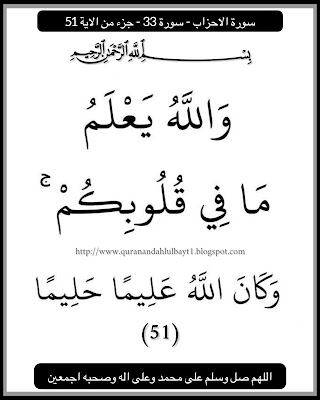 سورة الاحزاب - سورة 33 - جزء من الاية 51
بِسْمِ اللَّهِ الرَّحْمَٰنِ الرَّحِيمِ
وَاللَّهُ يَعْلَمُ
مَا فِي قُلُوبِكُمْ ۚ
http://www.quranandahlulbayt1.blogspot.com
وَكَانَ اللَّهُ عَلِيمًا حَلِيمًا
(51)
اللهم صل وسلم على محمد وعلى اله وصحبه اجمعين